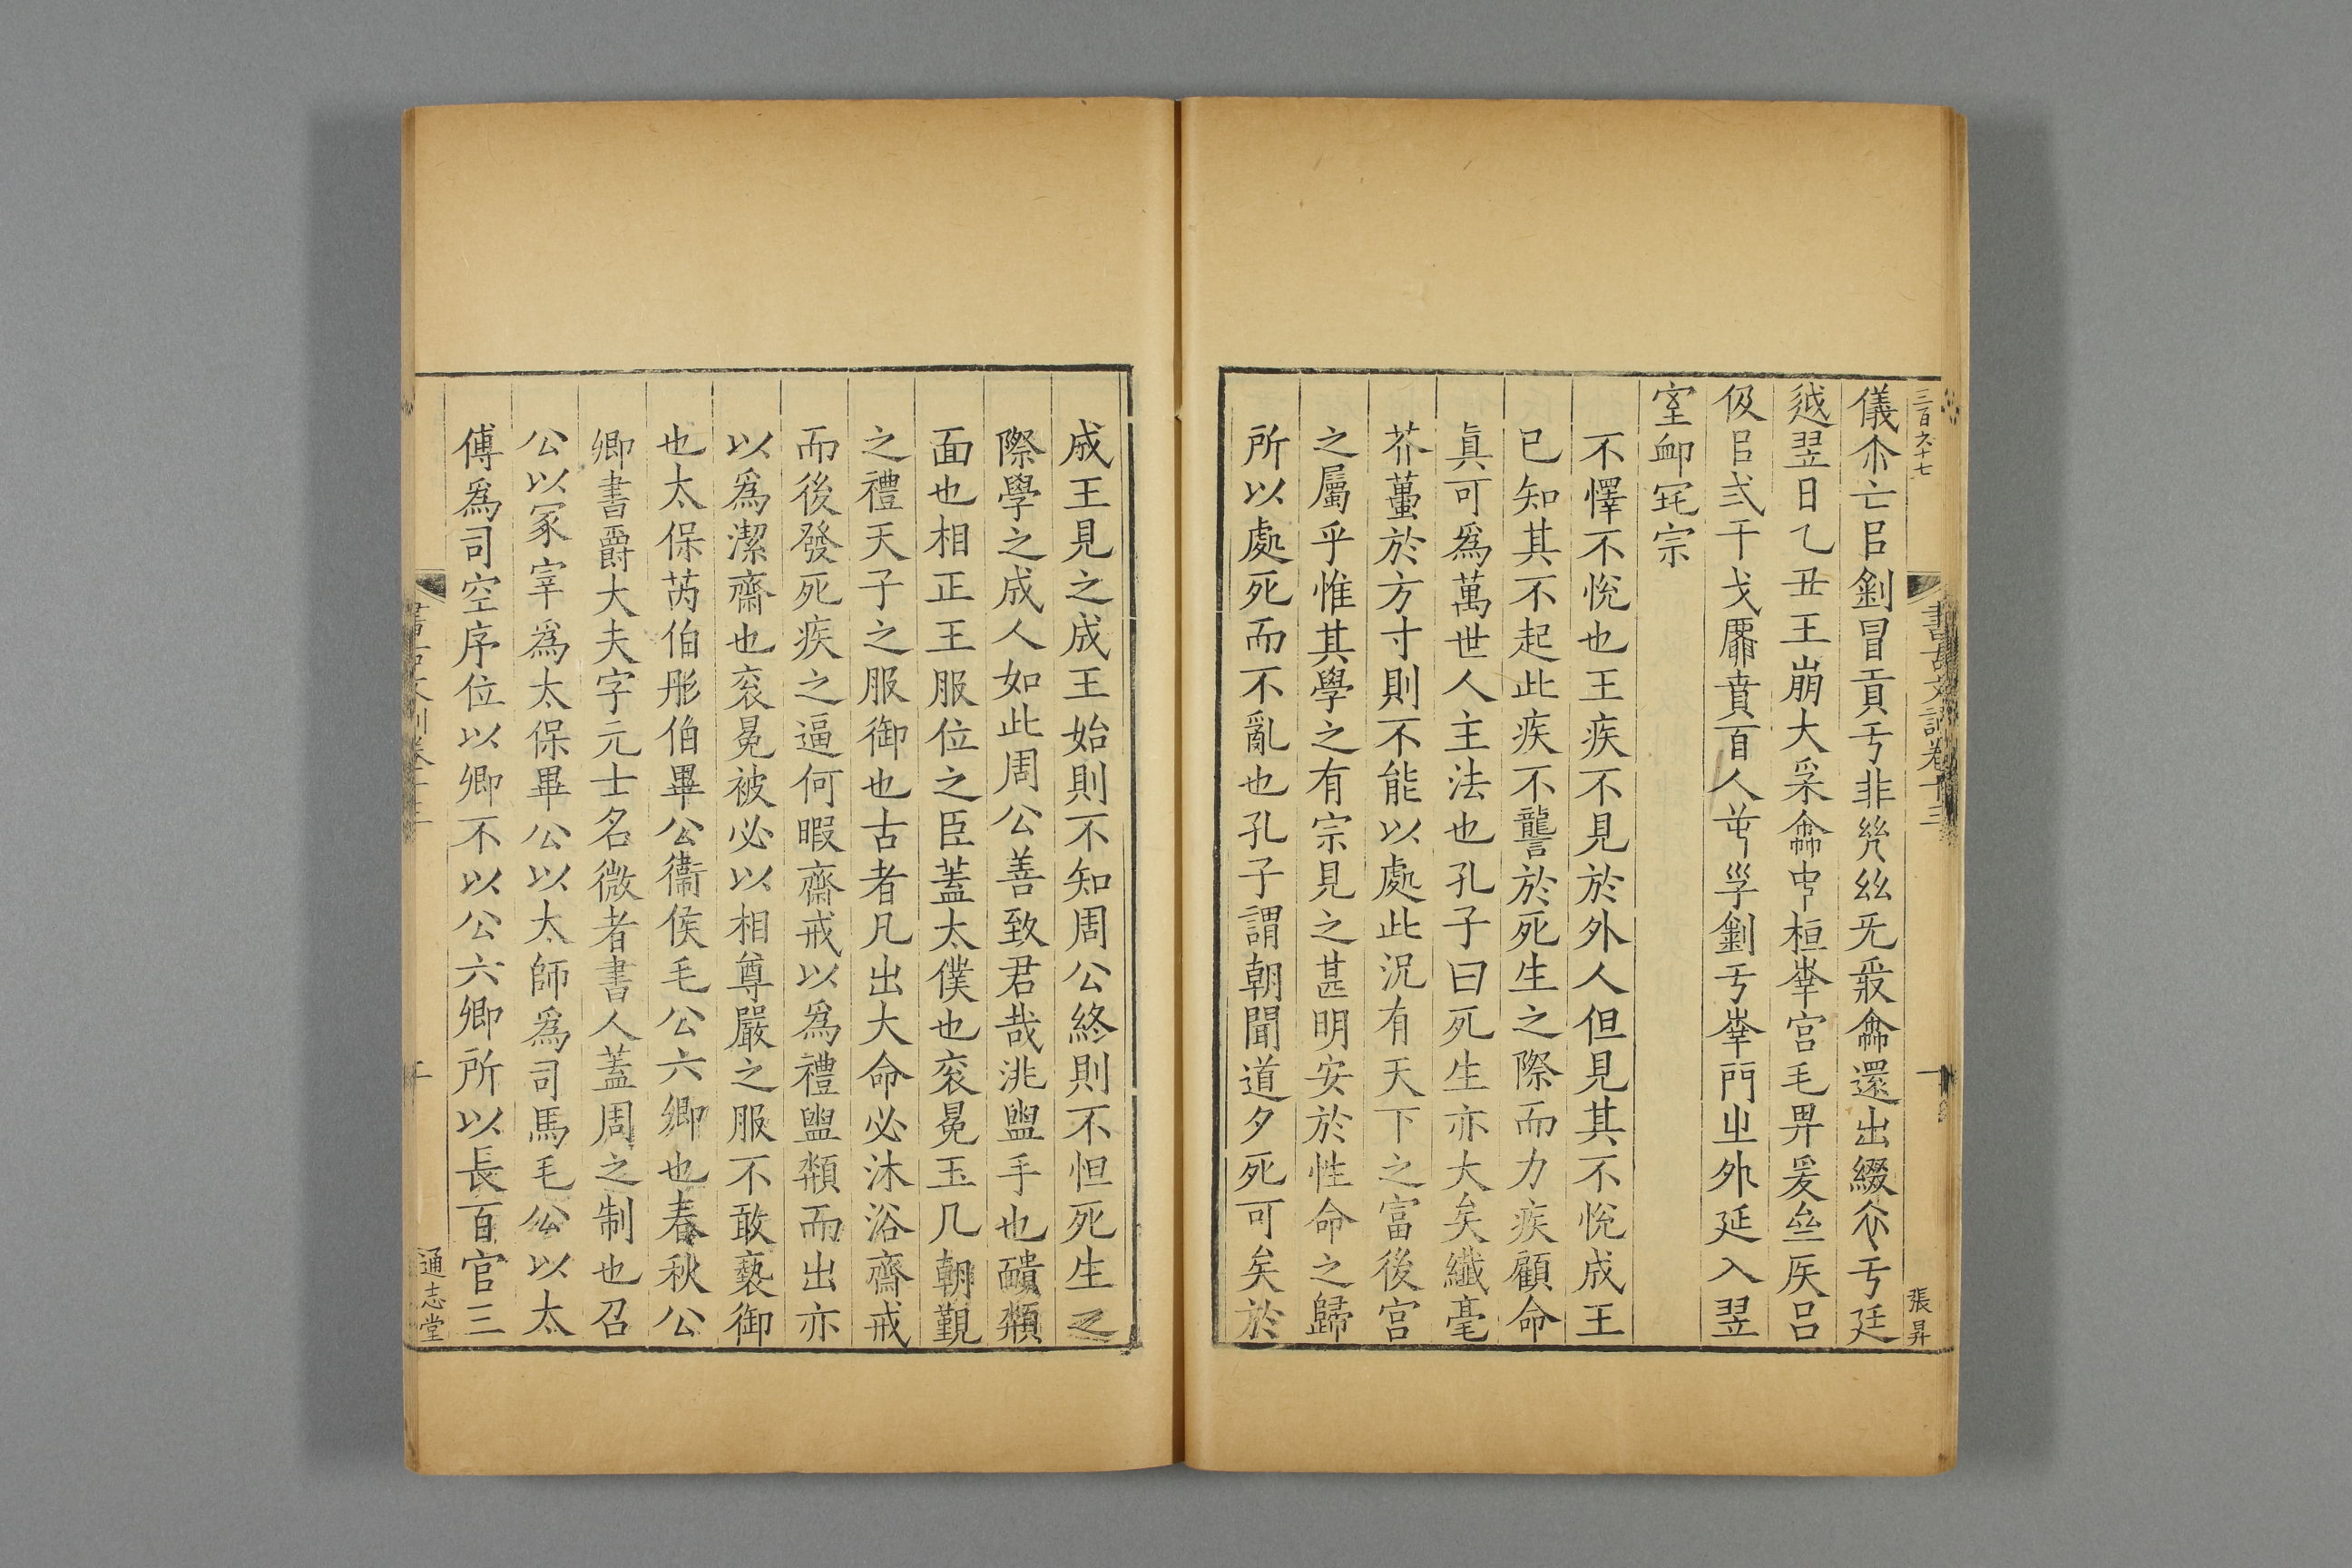 三百六十七
書古文訓卷十三
一
張昇
儀尒亡㠯釗冒貢亐非㡬丝旡𠭯龠還出綴㐱亐廷
逑翌日乙丑王崩大采龠𠁩桓𡴞宫毛畀爰𡴞𥎦吕
伋㠯弍干戈𩂣賁百人𦍒孚釗亐𡴞門㞢外延入翌
室卹宅宗
不懌不悅也王疾不見於外人但見其不悅成王
已知其不起此疾不讋於死生之際而力疾顧命
眞可爲萬世人主法也孔子曰死生亦大矣纖毫
芥蔕於方寸則不能以處此況有天下之富後宫
之屬乎惟其學之有宗見之甚明安於性命之歸
所以處死而不亂也孔子謂朝聞道夕死可矣於
成王見之成王始則不知周公終則不怛死生之
際學之成人如此周公善致君哉洮盥手也靧頮
面也相正王服位之臣蓋太僕也衮冕玉几朝覲
之禮天子之服御也古者凡出大命必沐浴齋戒
而後發死疾之逼何暇齋戒以爲禮盥頮而出亦
以爲潔齋也衮冕被必以相尊嚴之服不敢褻御
也太保芮伯彤伯畢公衞侯毛公六卿也春秋公
卿書爵大夫字元士名微者書人蓋周之制也召
公以冢宰爲太保畢公以太師爲司馬毛公以太
傅爲司空序位以卿不以公六卿所以長百官三
書古文訓卷十三
二
通志堂